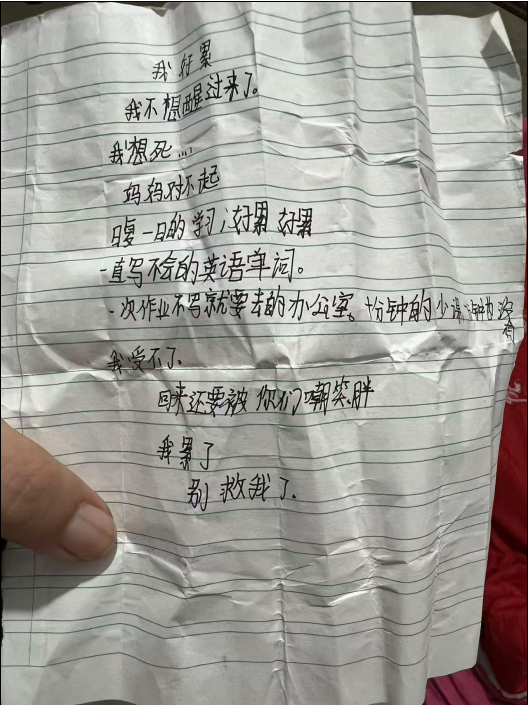 我好累
我不想醒过来了。
我想死...
妈妈对不起
日复一日的学习,好累 好累
一直写不会的英语单词。
一次作业不写就要去的办公室。十分钟的少 没有
我受不了
回来还要被你们嘲笑胖
我累了
别救我了.